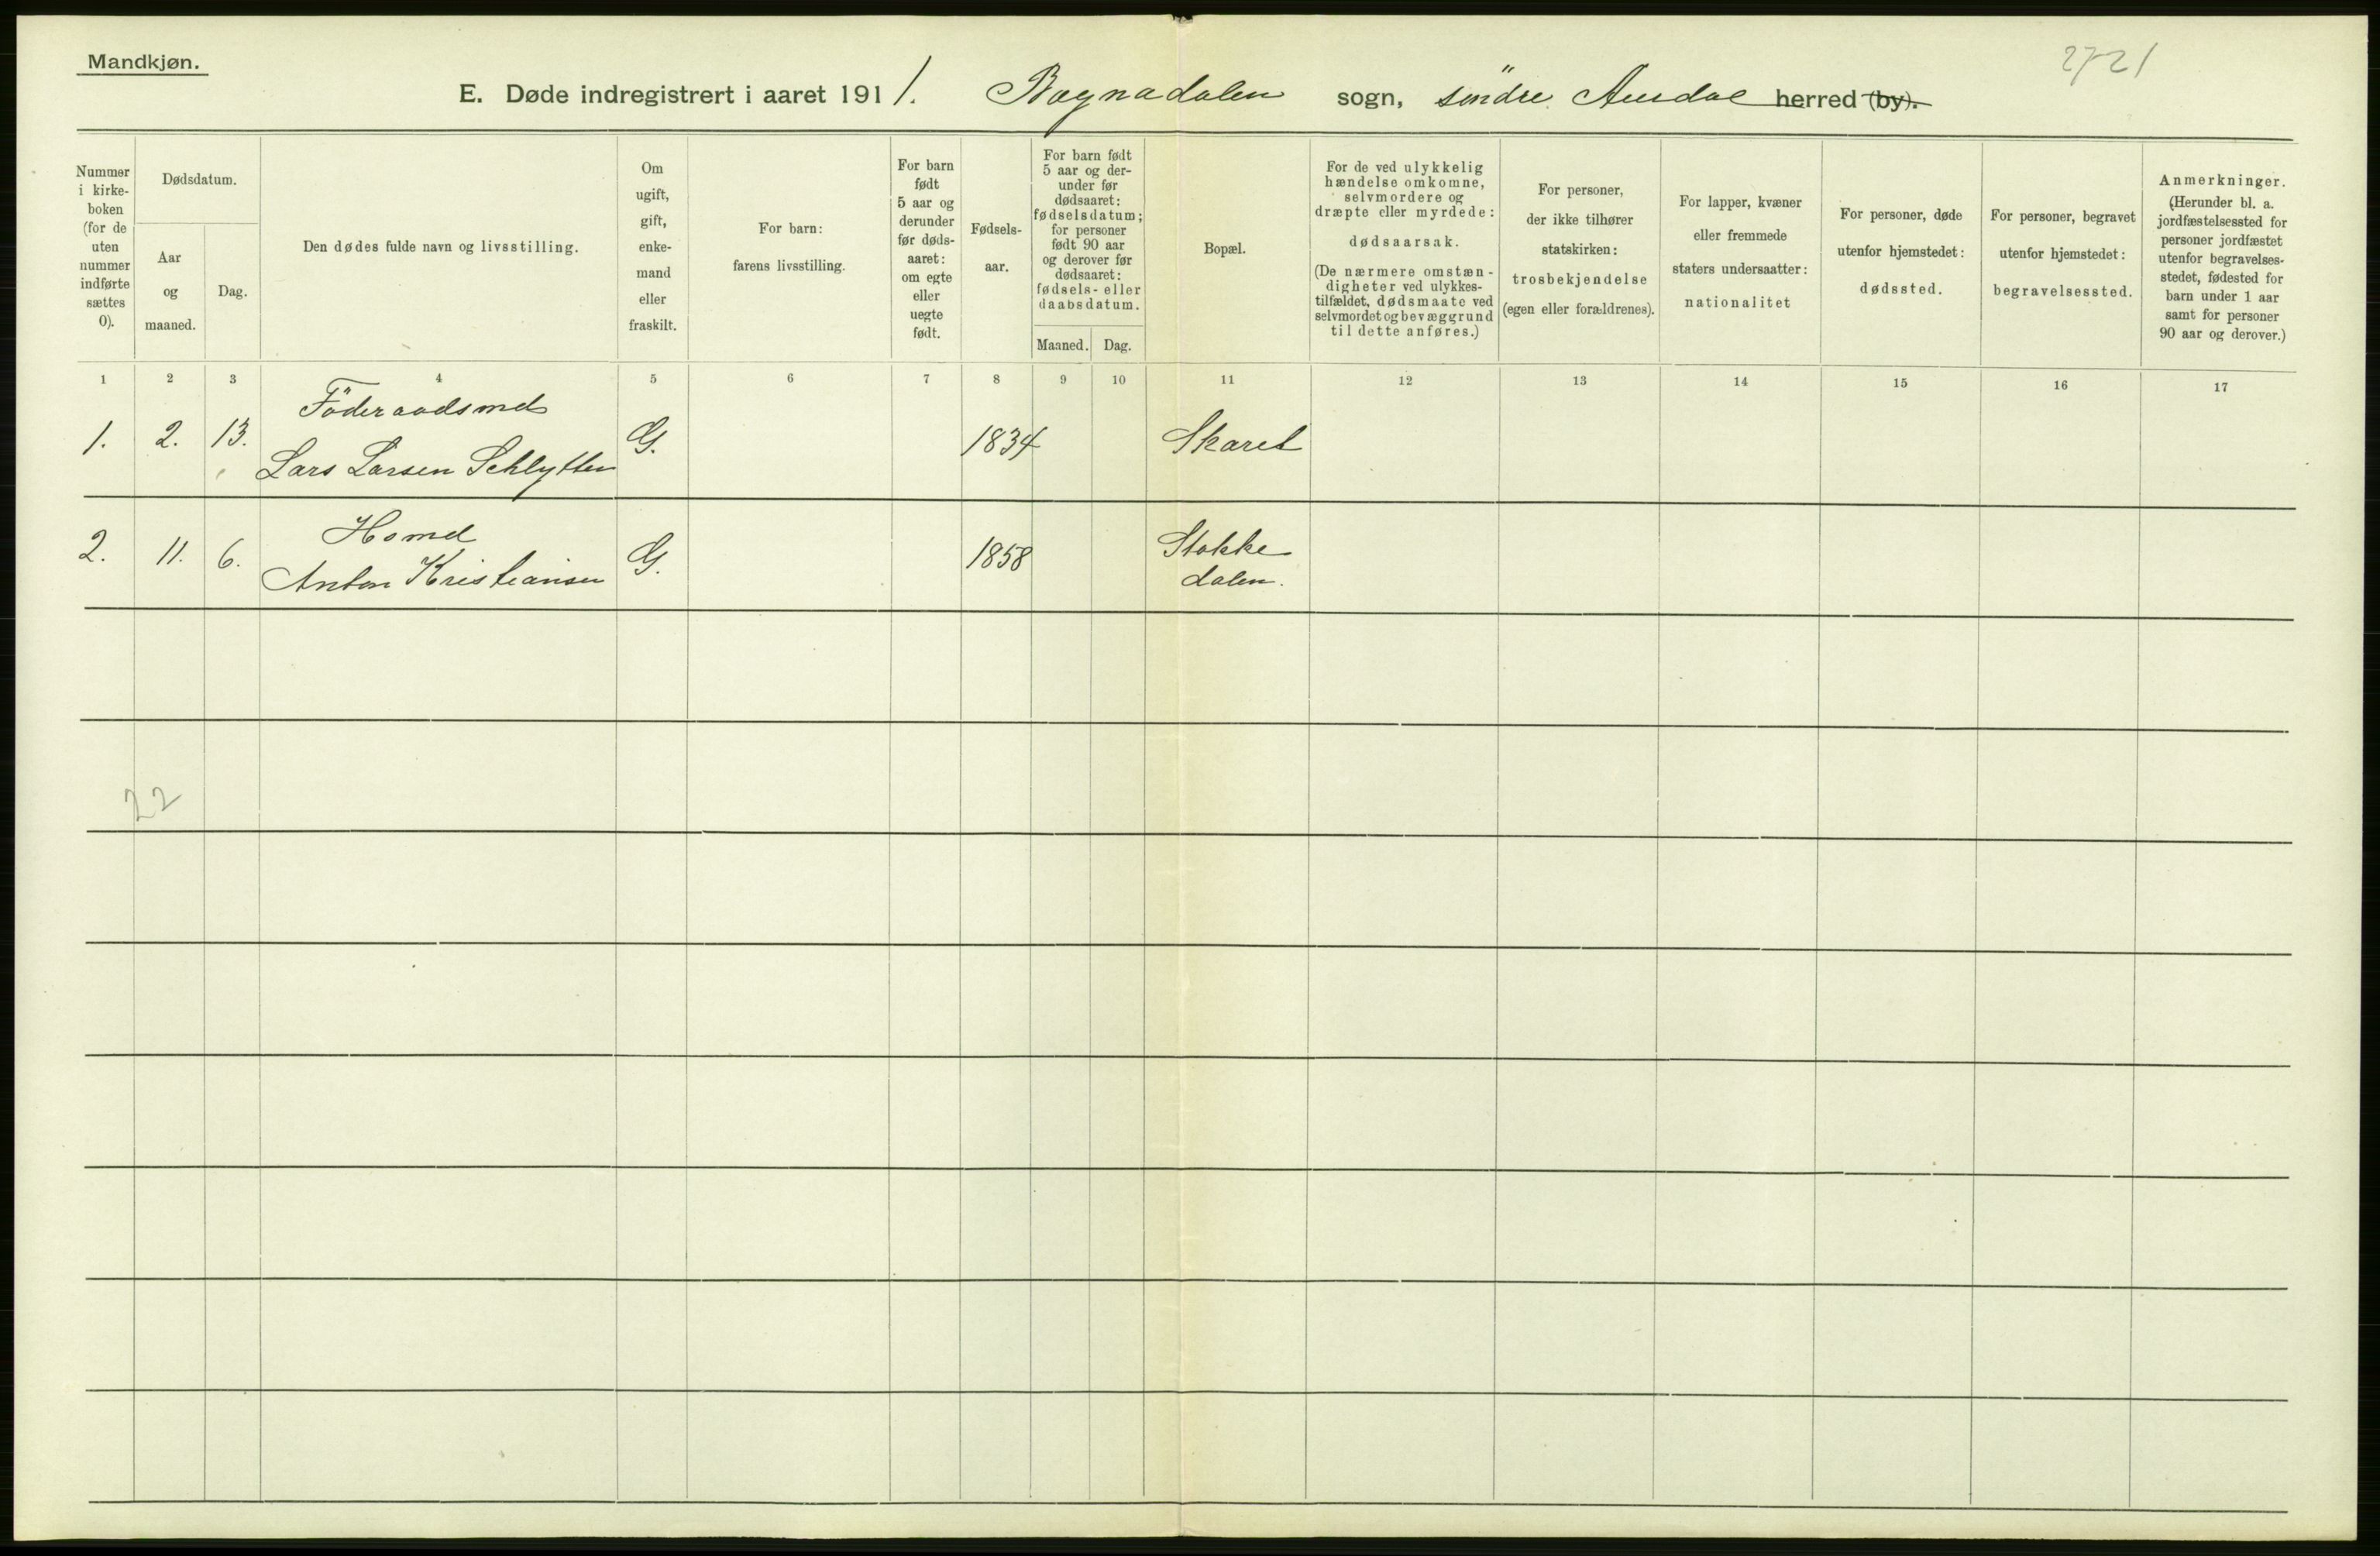 Mandkjøn.
2721
E. Døde indregistrert i aaret 1911. Bagnadalen sogn, söndre Aurdal herred (by).
Nummer i kirke-boken (for de uten nummer indførte sættes 0).
Dødsdatum.
Aar og maaned.
Dag.
Den dødes fulde navn og livsstilling.
Om ugift, gift, enke-mand eller fraskilt.
For barn: farens livsstilling.
For barn født 5 aar og derunder før døds-aaret: om egte eller uegte født.
Fødsels-aar.
For barn født 5 aar og der-under før dødsaaret: fødselsdatum; for personer født 90 aar og derover før dødsaaret: fødsels- eller daabsdatum.
Maaned.
Dag.
Bopæl.
For de ved ulykkelig hændelse omkomne, selvmordere og dræpte eller myrdede: dødsaarsak. (De nærmere omstæn-digheter ved ulykkes-tilfældet, dødsmaate ved selvmordet og bevæggrund til dette anføres.)
For personer, der ikke tilhører statskirken: trosbekjendelse (egen eller forældrenes).
For lapper, kvæner eller fremmede staters undersaatter: nationalitet
For personer, døde utenfor hjemstedet: dødssted.
For personer, begravet utenfor hjemstedet: begravelsessted.
Anmerkninger. (Herunder bl. a. jordfæstelsessted for personer jordfæstet utenfor begravelses-stedet, fødested for barn under 1 aar samt for personer 90 aar og derover.)
1 2 3 4 5 6 7 8 9 10 11 12 13 14 15 16 17
Föderaadsmd
1. 2. 13. Lars Larsen Schlytter G. 1834 Skaret
Hsmd
2. 11. 6. Anton Kristiansen G. 1858 Stokke
dalen.
22